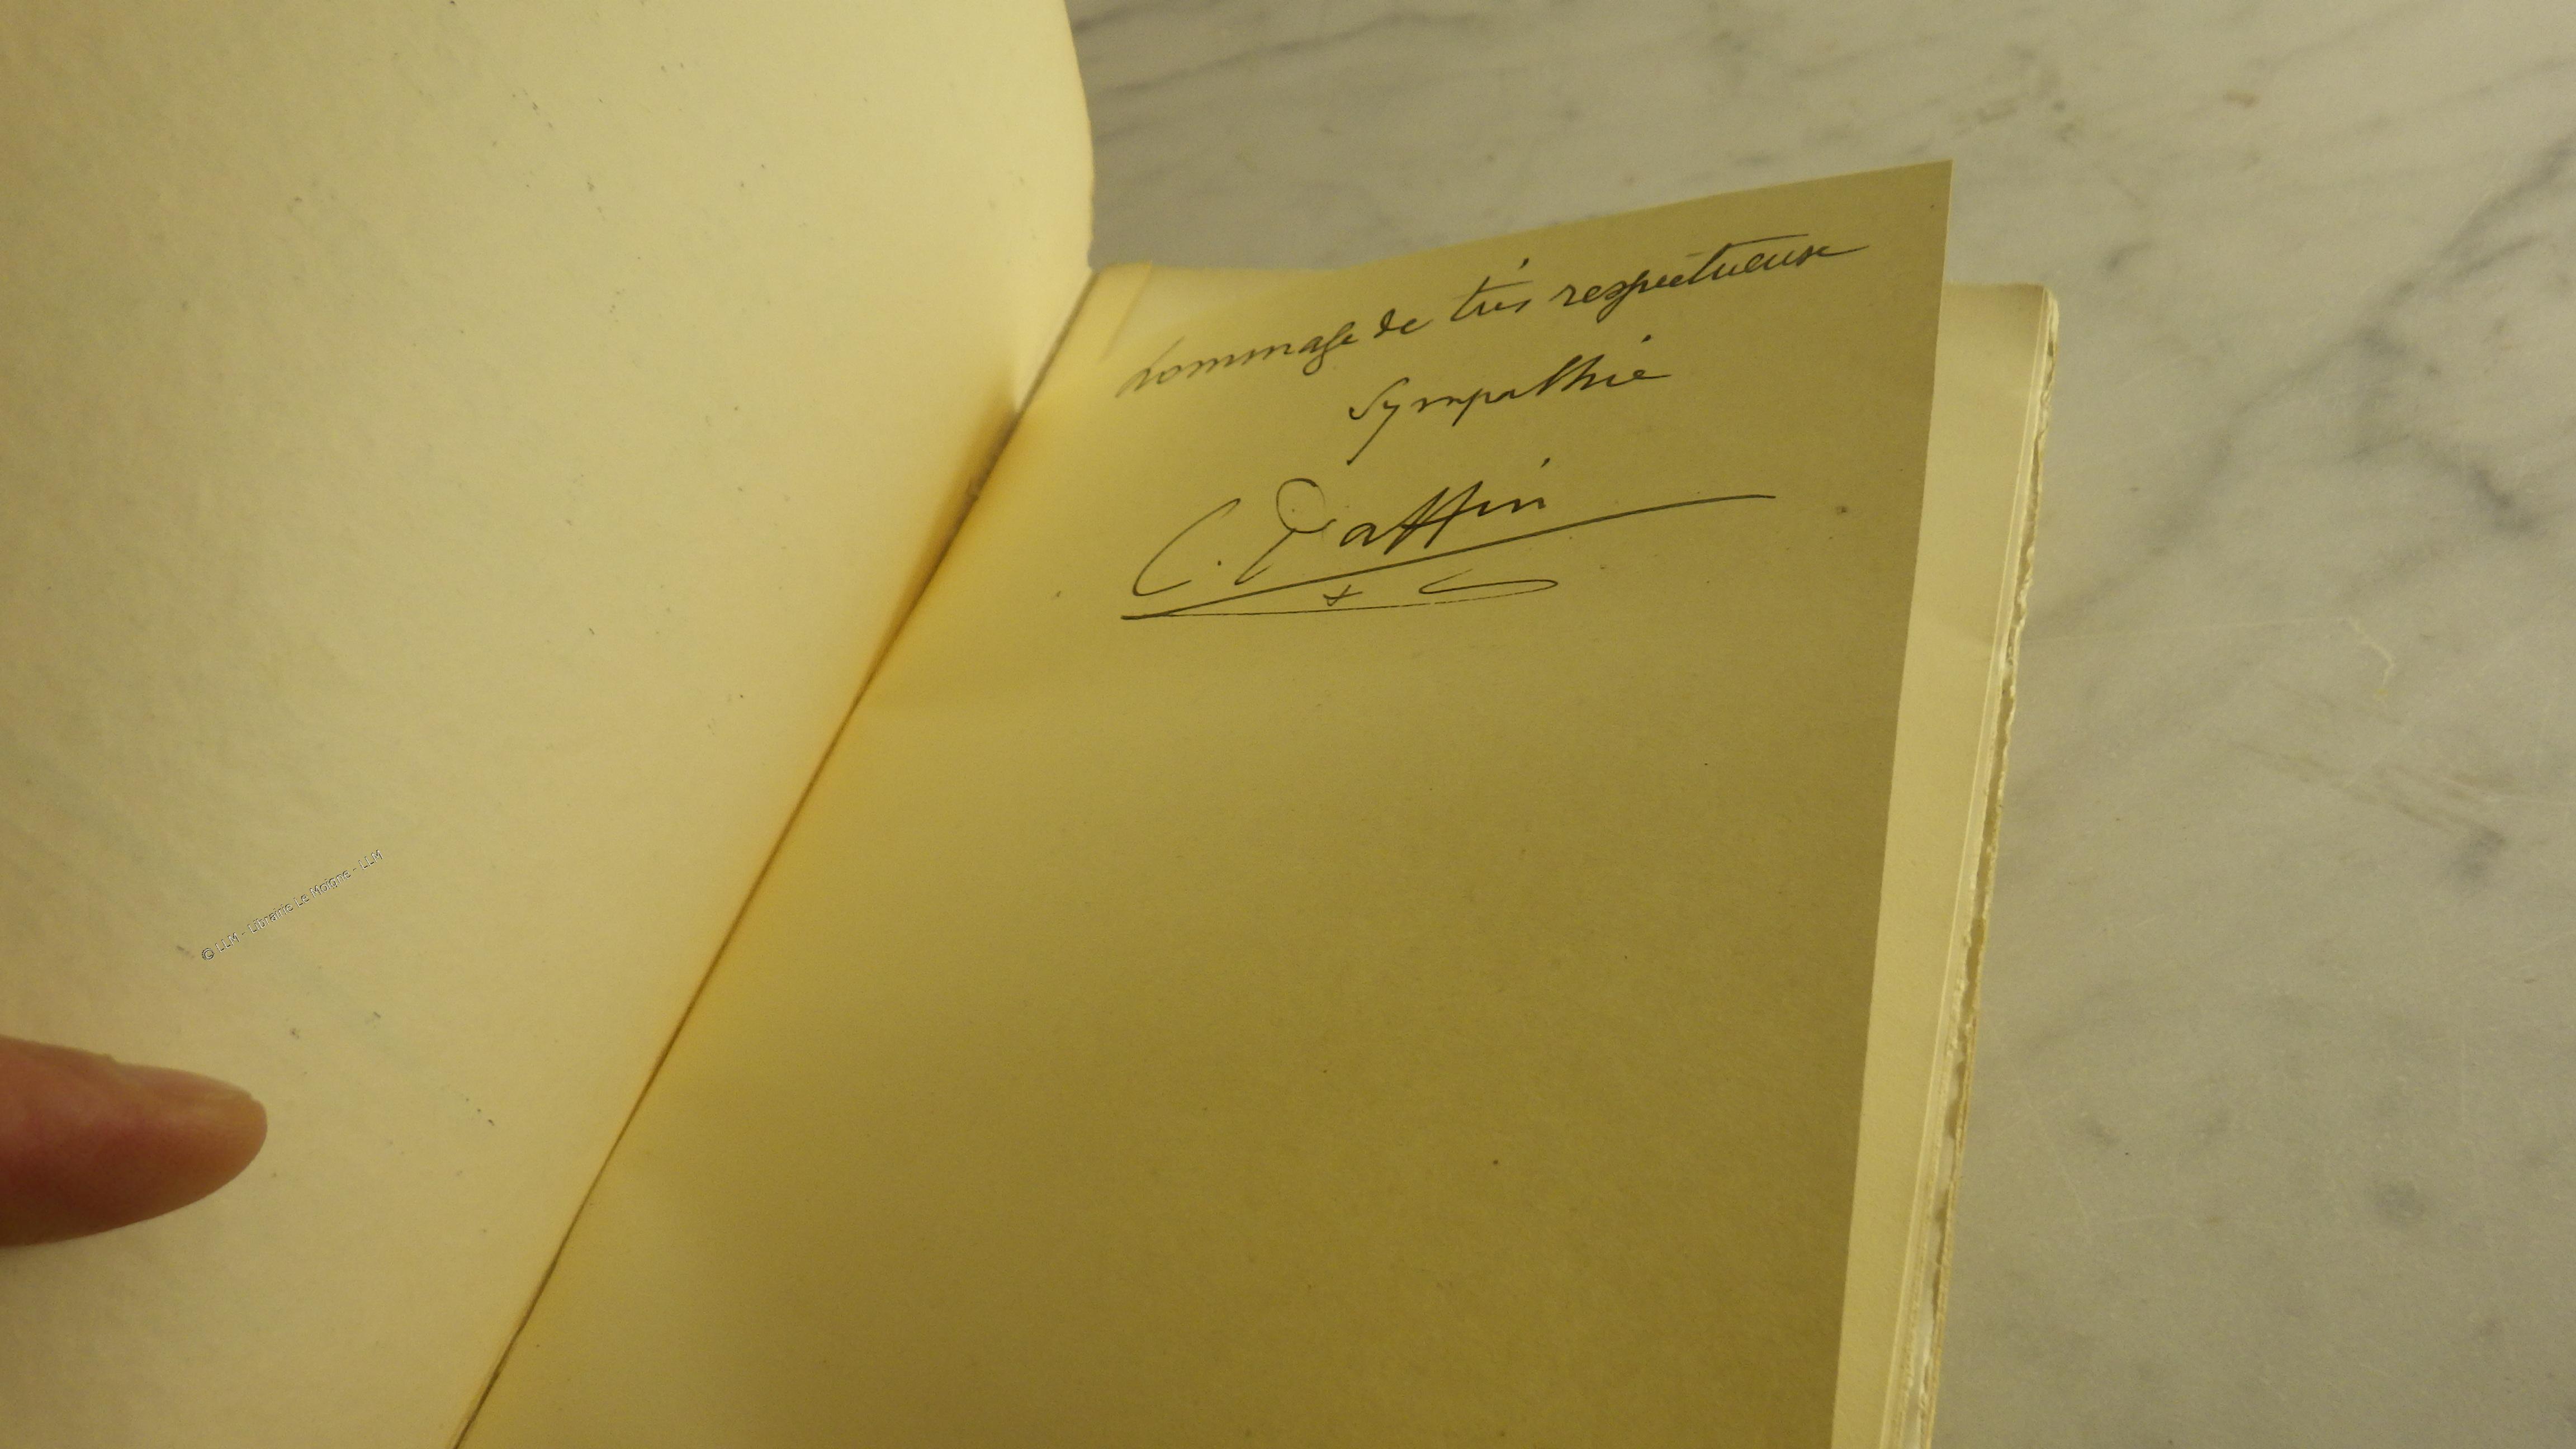 hommage de très respectueuse
sympathie
© LLM - Librairie Le Moigne - LLM